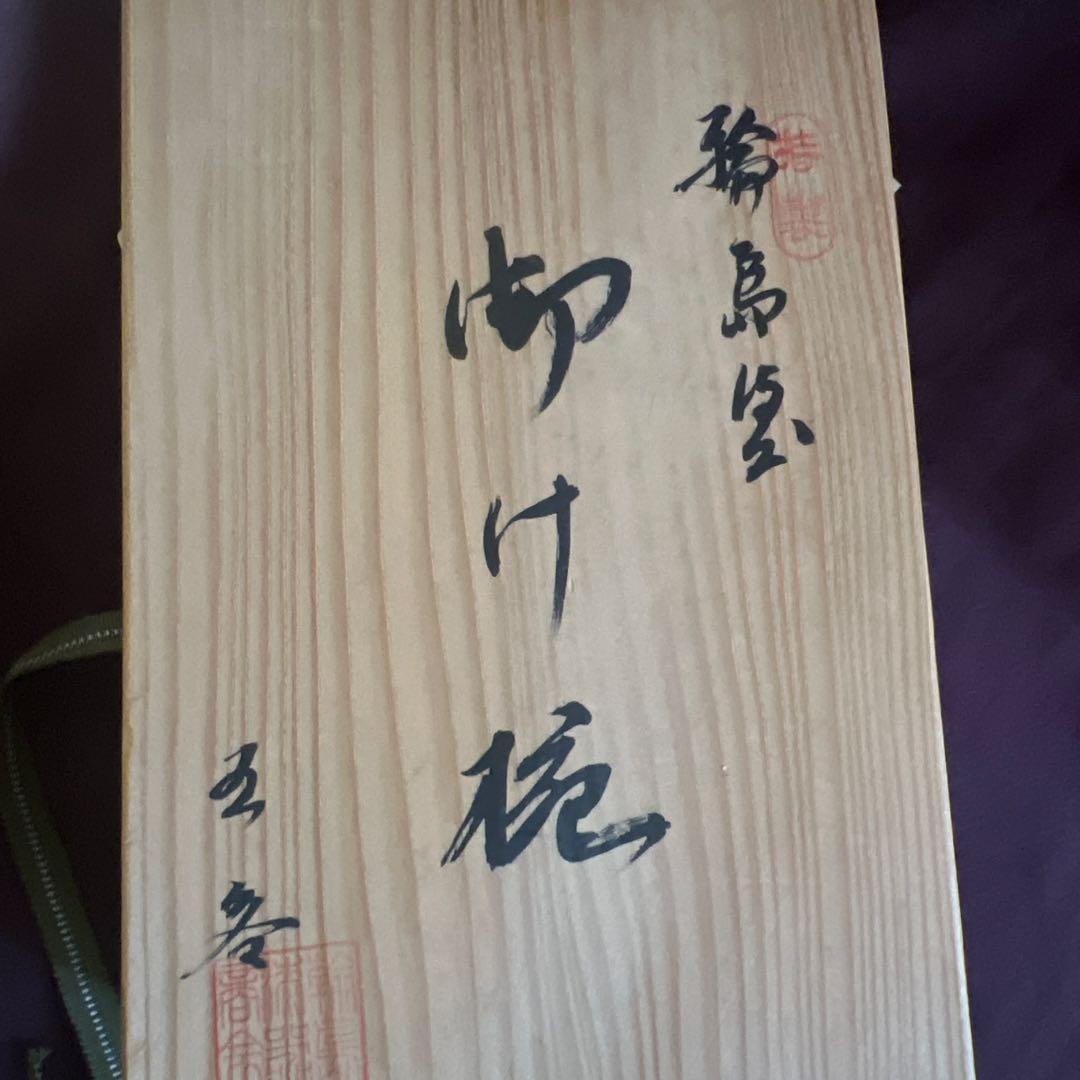 特製
輪島塗
御汁椀
五客